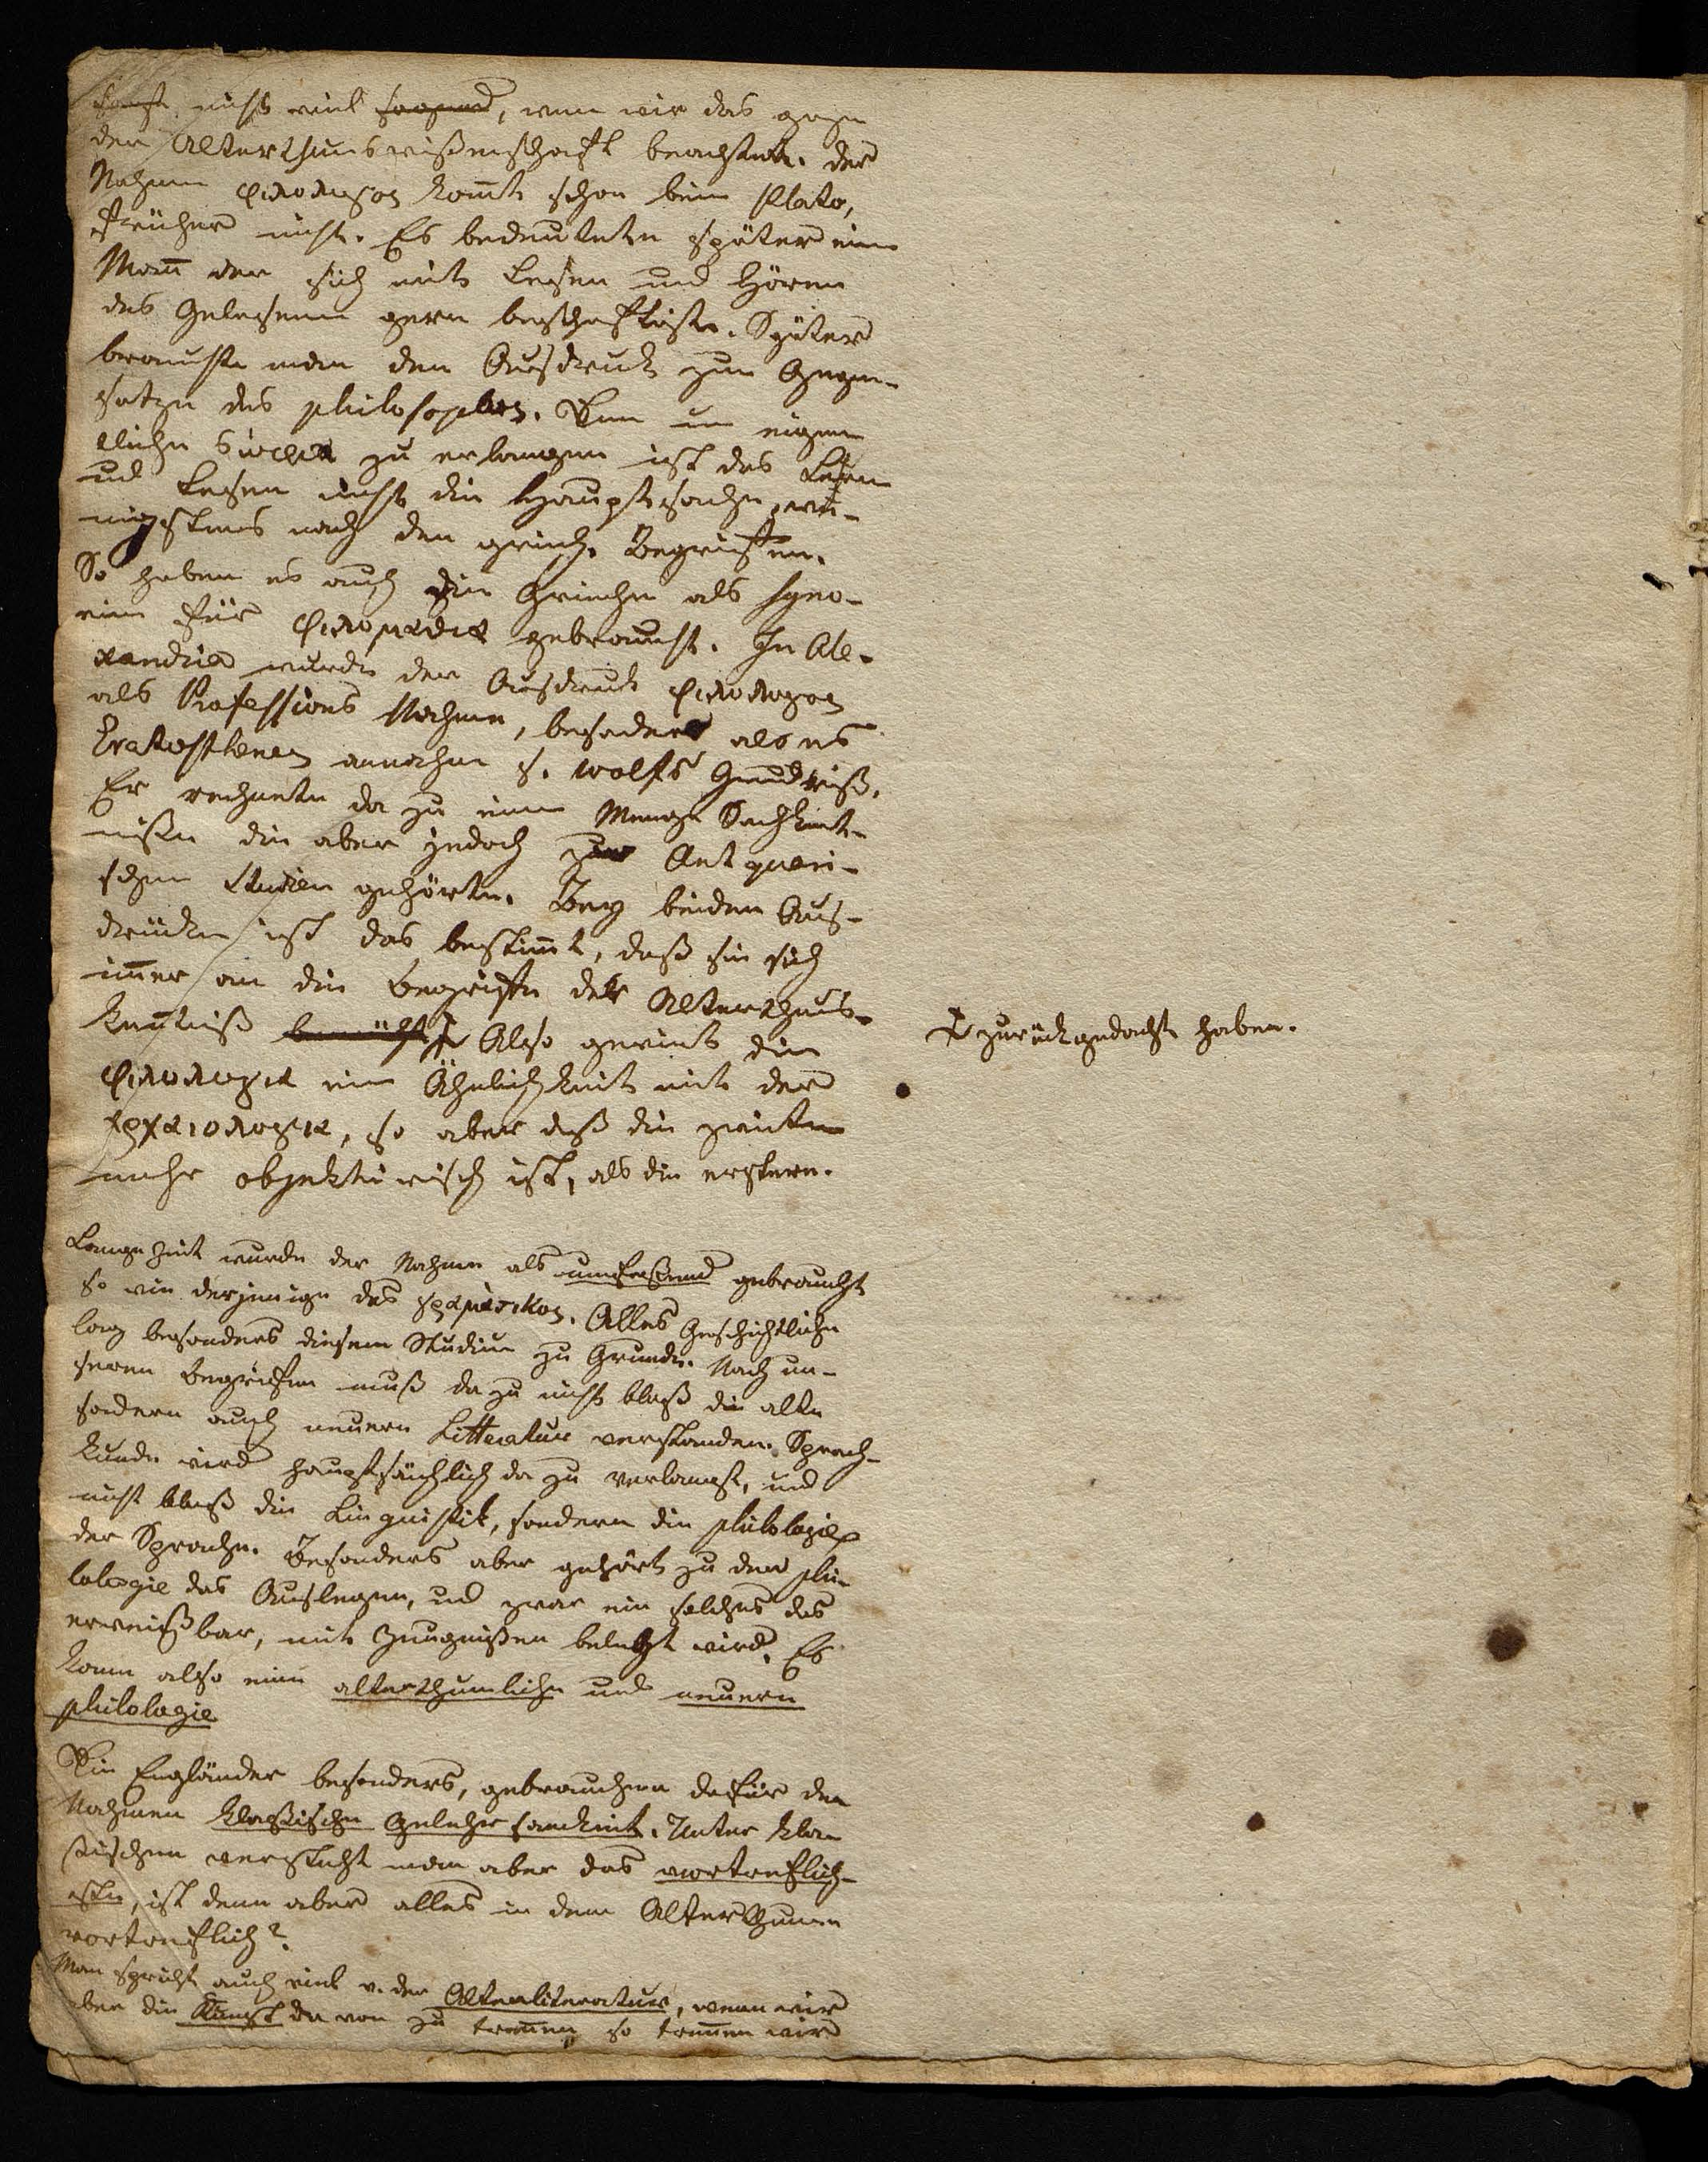 nicht viel sagend, wenn wir das ganze
der Alterthumswißenschaft beachten. Der
Nahme φιλολογος komt schon beim Plato,
früher nicht. Es bedeutete später einen
Mann der sich mit Lesen und Hören
des Gelesenen gern beschäftigte. Später
brauchte man den Ausdruck zum Gegen-
satze des philosophos. Denn um eigen
tliche σοφια zu erlangen ist das Lesen
und Lesen nicht die Hauptsache, we-
nigstens nach den griech. Begriffen.
So haben es auch die Griechen als Syno-
nim für φιλομαθια gebraucht. In Ale-
xandria wurde der Ausdruck φιλολογος
als Professions Nahme, besonders als es
Eratosthenes annahm s. Wolfs Grundriß.
Er rechnete da zu eine Menge Sachkent-
nißen die aber jedoch zur Antquari-
schen Studien gehörten. Bey beiden Aus-
drücken ist das bestimt, daß sie sich
imer an die Begriffe der Alterthums-
kentniß bemüht ⨡ Also gewint die
φιλολογια eine Ähnlichkeit mit der
αρχαιολογια, so aber daß die zweite
mehr objektivisch ist, als die erstere.
⨡ zurückgedacht haben.
Lange Zeit wurde der Nahme als umfaßend gebraucht
so wie derjenige des γραμματικος. Alles Geschichtliche
lag besonders diesem Studium zu Grunde. Nach un-
seren Begriffen muß da zu nicht bloß die alte
sondern auch neuere Litteratur verstanden. Sprach-
kunde wird hauptsächlich da zu verlangt, und
nicht bloß die Linguistik, sondern die philologie
der Sprache. Besonders aber gehört zu der phi-
lologie das Auslegen, und zwar ein solches das
erweißbar, mit Zeugnißen belegt wird. Es
kann also eine alterthumliche und neuern
philologie
Die Engländer besonders, gebrauchen dafür den
Nahmen klaßische Gelehrsamkeit. Unter klas
sischen versteht man aber das vortreflich-
ste, ist denn aber alles in dem Alterthume
vortreflich?
Man spricht auch viel v. der Altenliteratur, wenn wir
aber die Kunst da von zu trennen, so trennen wir